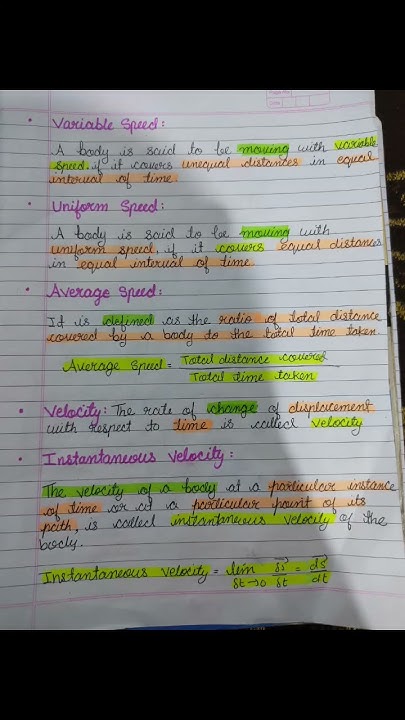 • Variable Speed:
A body is said to be moving with variable
speed, if it covers unequal distances in equal
interval of time.
• Uniform Speed:
A body is said to be moving with
uniform speed, if it covers equal distances
in equal interval of time.
• Average Speed:
It is defined as the ratio of total distance
covered by a body to the total time taken
Average Speed = Total distance covered
Total time taken
• Velocity: The rate of change of displacement
with respect to time is called velocity
• Instantaneous Velocity:
The velocity of a body at a particular instance
of time or at a particular point of its
path, is called instantaneous velocity of the
body.
Instantaneous Velocity = lim δs⃗ = ds⃗
δt→0 δt dt